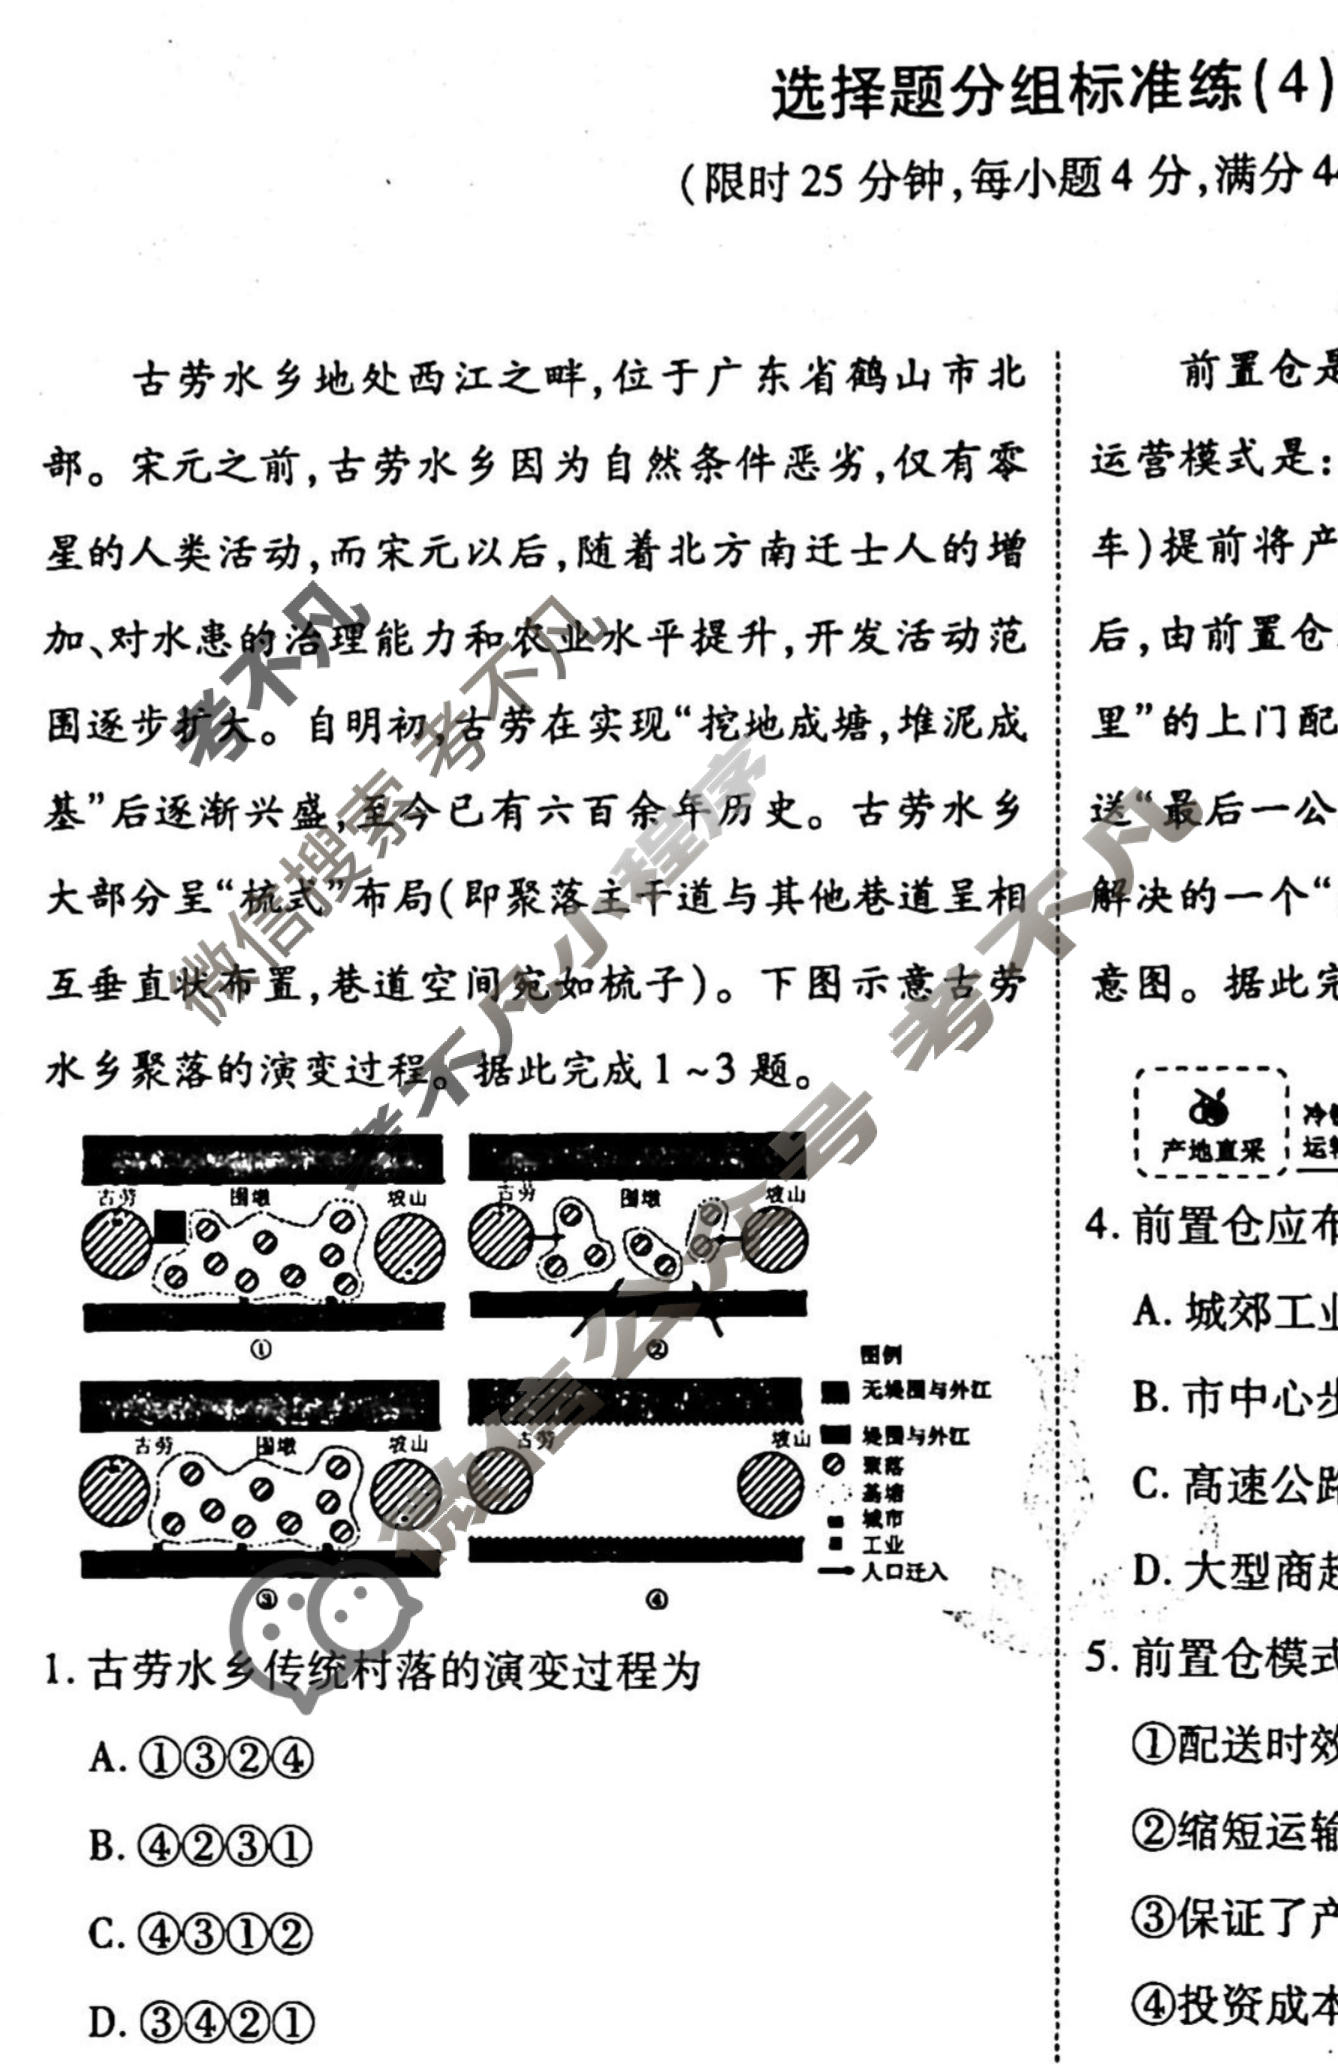 选择题分组标准练(4)
(限时25分钟,每小题4分,满分44
古劳水乡地处西江之畔,位于广东省鹤山市北
部。宋元之前,古劳水乡因为自然条件恶劣,仅有零
星的人类活动,而宋元以后,随着北方南迁士人的增
加、对水患的治理能力和农业水平提升,开发活动范
围逐步扩大。自明初,古劳在实现“挖地成塘,堆泥成
基”后逐渐兴盛,至今已有六百余年历史。古劳水乡
大部分呈“梳式”布局(即聚落主干道与其他巷道呈相
互垂直状布置,巷道空间宛如梳子)。下图示意古劳
水乡聚落的演变过程。据此完成1~3题。
古劳 围墩 坡山
①
古劳 围墩 坡山
②
古劳 围墩 坡山
③
古劳 坡山
④
图例
无堤围与外江
堤围与外江
聚落
基塘
城市
工业
人口迁入
1. 古劳水乡传统村落的演变过程为
A. ①③②④
B. ④②③①
C. ④③①②
D. ③④②①
前置仓是
运营模式是:
车)提前将产
后,由前置仓
里”的上门配
送“最后一公
解决的一个“
意图。据此完
产地直采
冷链
运输
4. 前置仓应布
A. 城郊工业
B. 市中心步
C. 高速公路
D. 大型商超
5. 前置仓模式
①配送时效
②缩短运输
③保证了产
④投资成本
考不凡
微信搜索 考不凡
考不凡小程序
微信公众号 考不凡